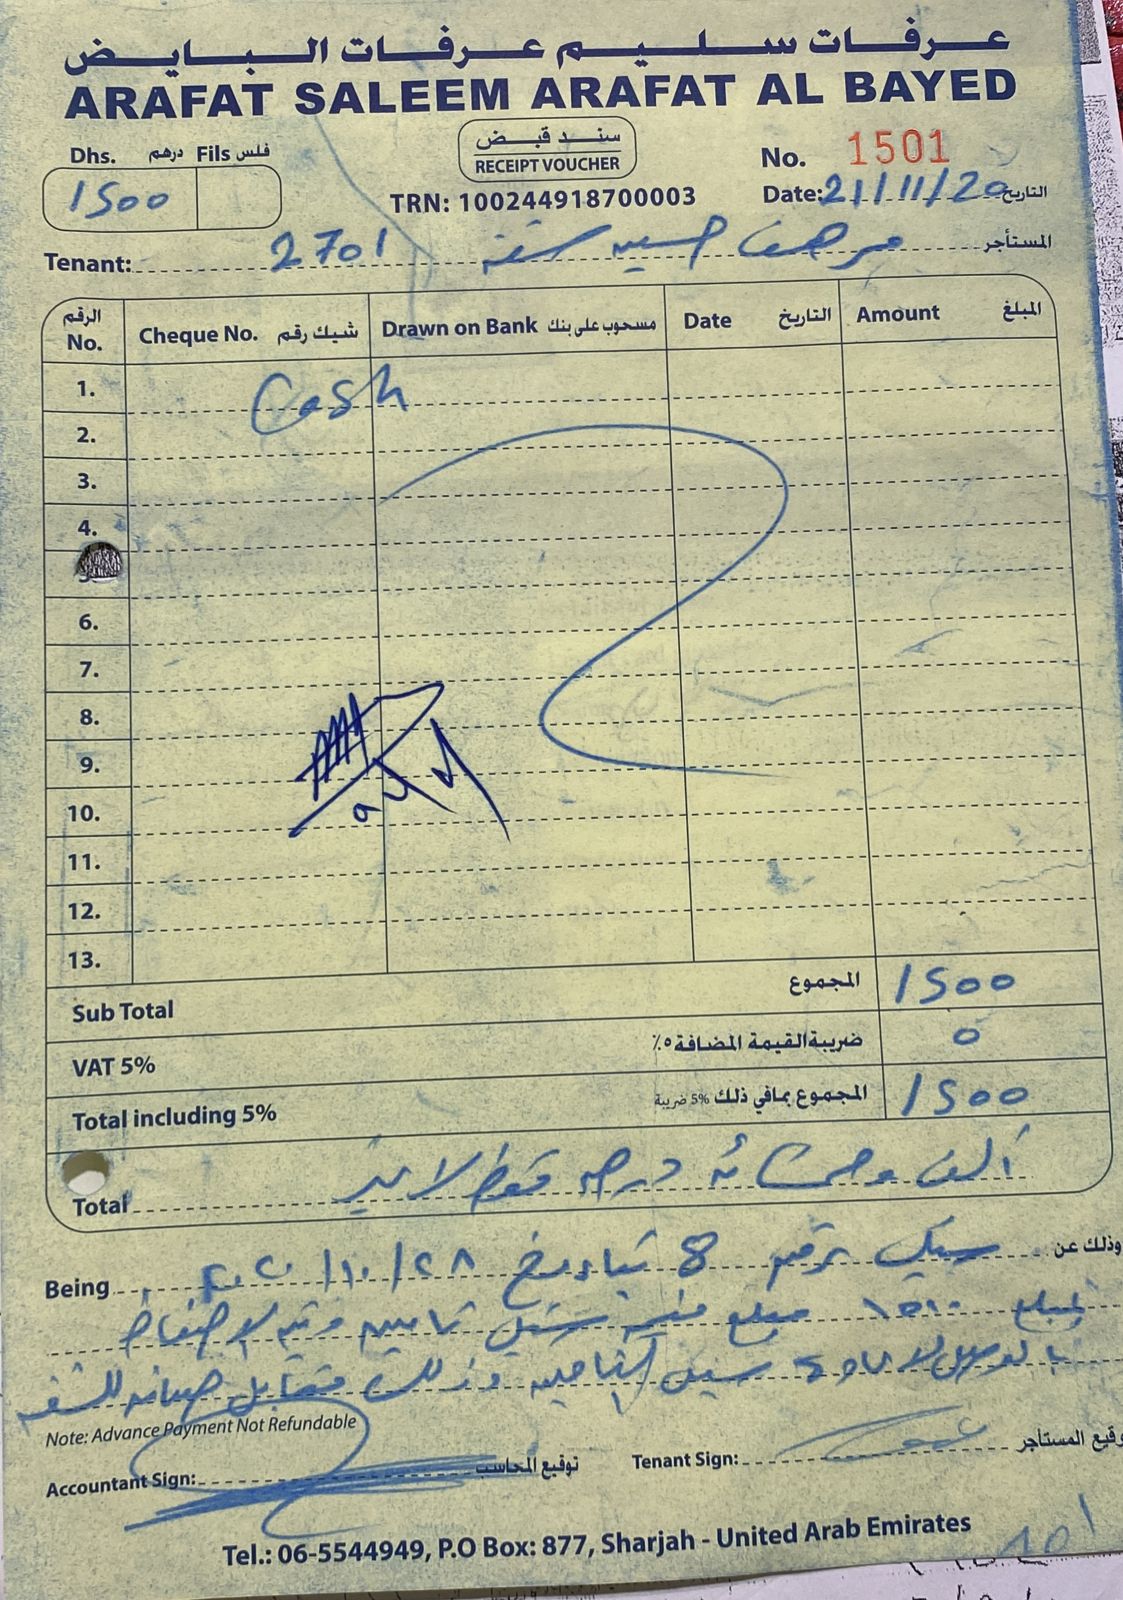 عرفات سليم عرفات البايض
ARAFAT SALEEM ARAFAT AL BAYED
Dhs. درهم Fils فلس
1500
سند قبض
RECEIPT VOUCHER
TRN: 100244918700003
No. 1501
Date: 21/11/20 التاريخ
Tenant: 2701 حسين شقة المستأجر
الرقم No. Cheque No. شيك رقم Drawn on Bank مسحوب على بنك Date التاريخ Amount المبلغ
1. Cash
2.
3.
4.
6.
7.
8.
9.
10.
11.
12.
13.
Sub Total المجموع 1500
VAT 5% ضريبة القيمة المضافة ٥٪ 0
Total including 5% المجموع بمافي ذلك 5% ضريبة 1500
Total ألف وخمسمائة درهم فقط لا غير
Being وذلك عن شيك رقم 8 بتاريخ ٢٨/١٠/٢٠٢٠
بمبلغ ١٥٠٠ مبلغ من شيك تأمين وتم الاحتفاظ
شيك التأمين وذلك مقابل صيانة للشقة
Note: Advance Payment Not Refundable
Accountant Sign: توقيع المحاسب Tenant Sign: توقيع المستأجر
Tel.: 06-5544949, P.O Box: 877, Sharjah - United Arab Emirates